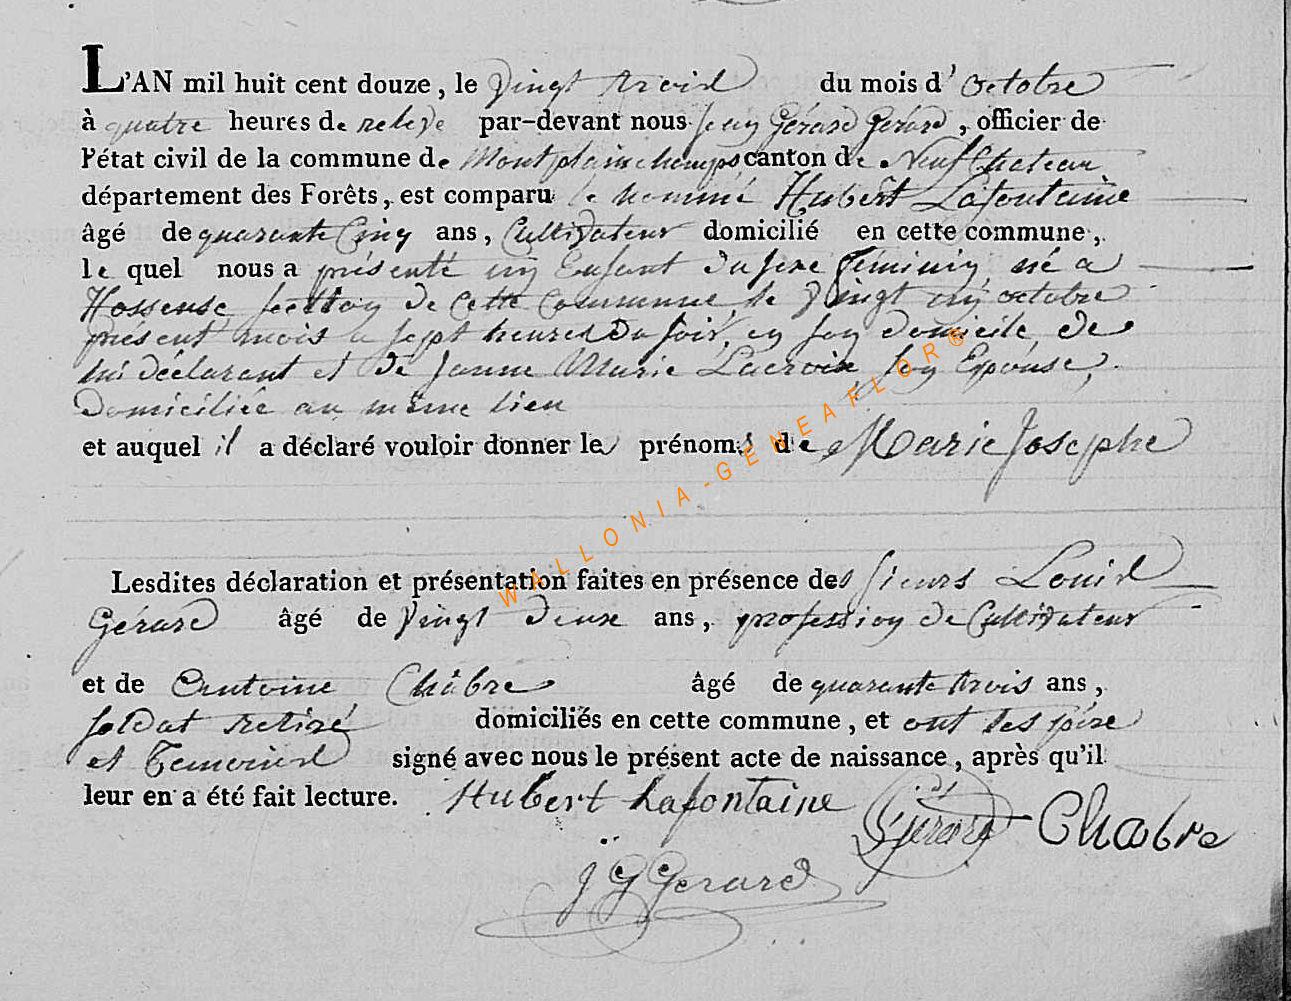 L'AN mil huit cent douze, le vingt trois du mois d'octobre
à quatre heures de relevé par-devant nous Jean Gérard Gérard, officier de
l'état civil de la commune de Montplainchamps canton de Neufchateau
département des Forêts, est comparu le nommé Hubert Lafontaine
âgé de quarante Cinq ans, Cultivateur domicilié en cette commune,
le quel nous a présenté un Enfant du sexe féminin, né a
Hosseuse section de cette commune, le vingt un octobre
présent mois a sept heures du soir, en son domicile, de
lui déclarant et de Jeanne Marie Lacroix son Epouse,
Domiciliée au même lieu
et auquel il a déclaré vouloir donner les prénoms de Marie Josephe
Lesdites déclaration et présentation faites en présence des sieurs Louis
Gérard âgé de vingt deux ans, profession de Cultivateur
et de Antoine Châbre âgé de quarante trois ans,
soldat retiré domiciliés en cette commune, et ont les père
et Temoins signé avec nous le présent acte de naissance, après qu'il
leur en a été fait lecture. Hubert Lafontaine L Gérard Chabre
J G Gerard
WALLONIA-GENEAFLOR®